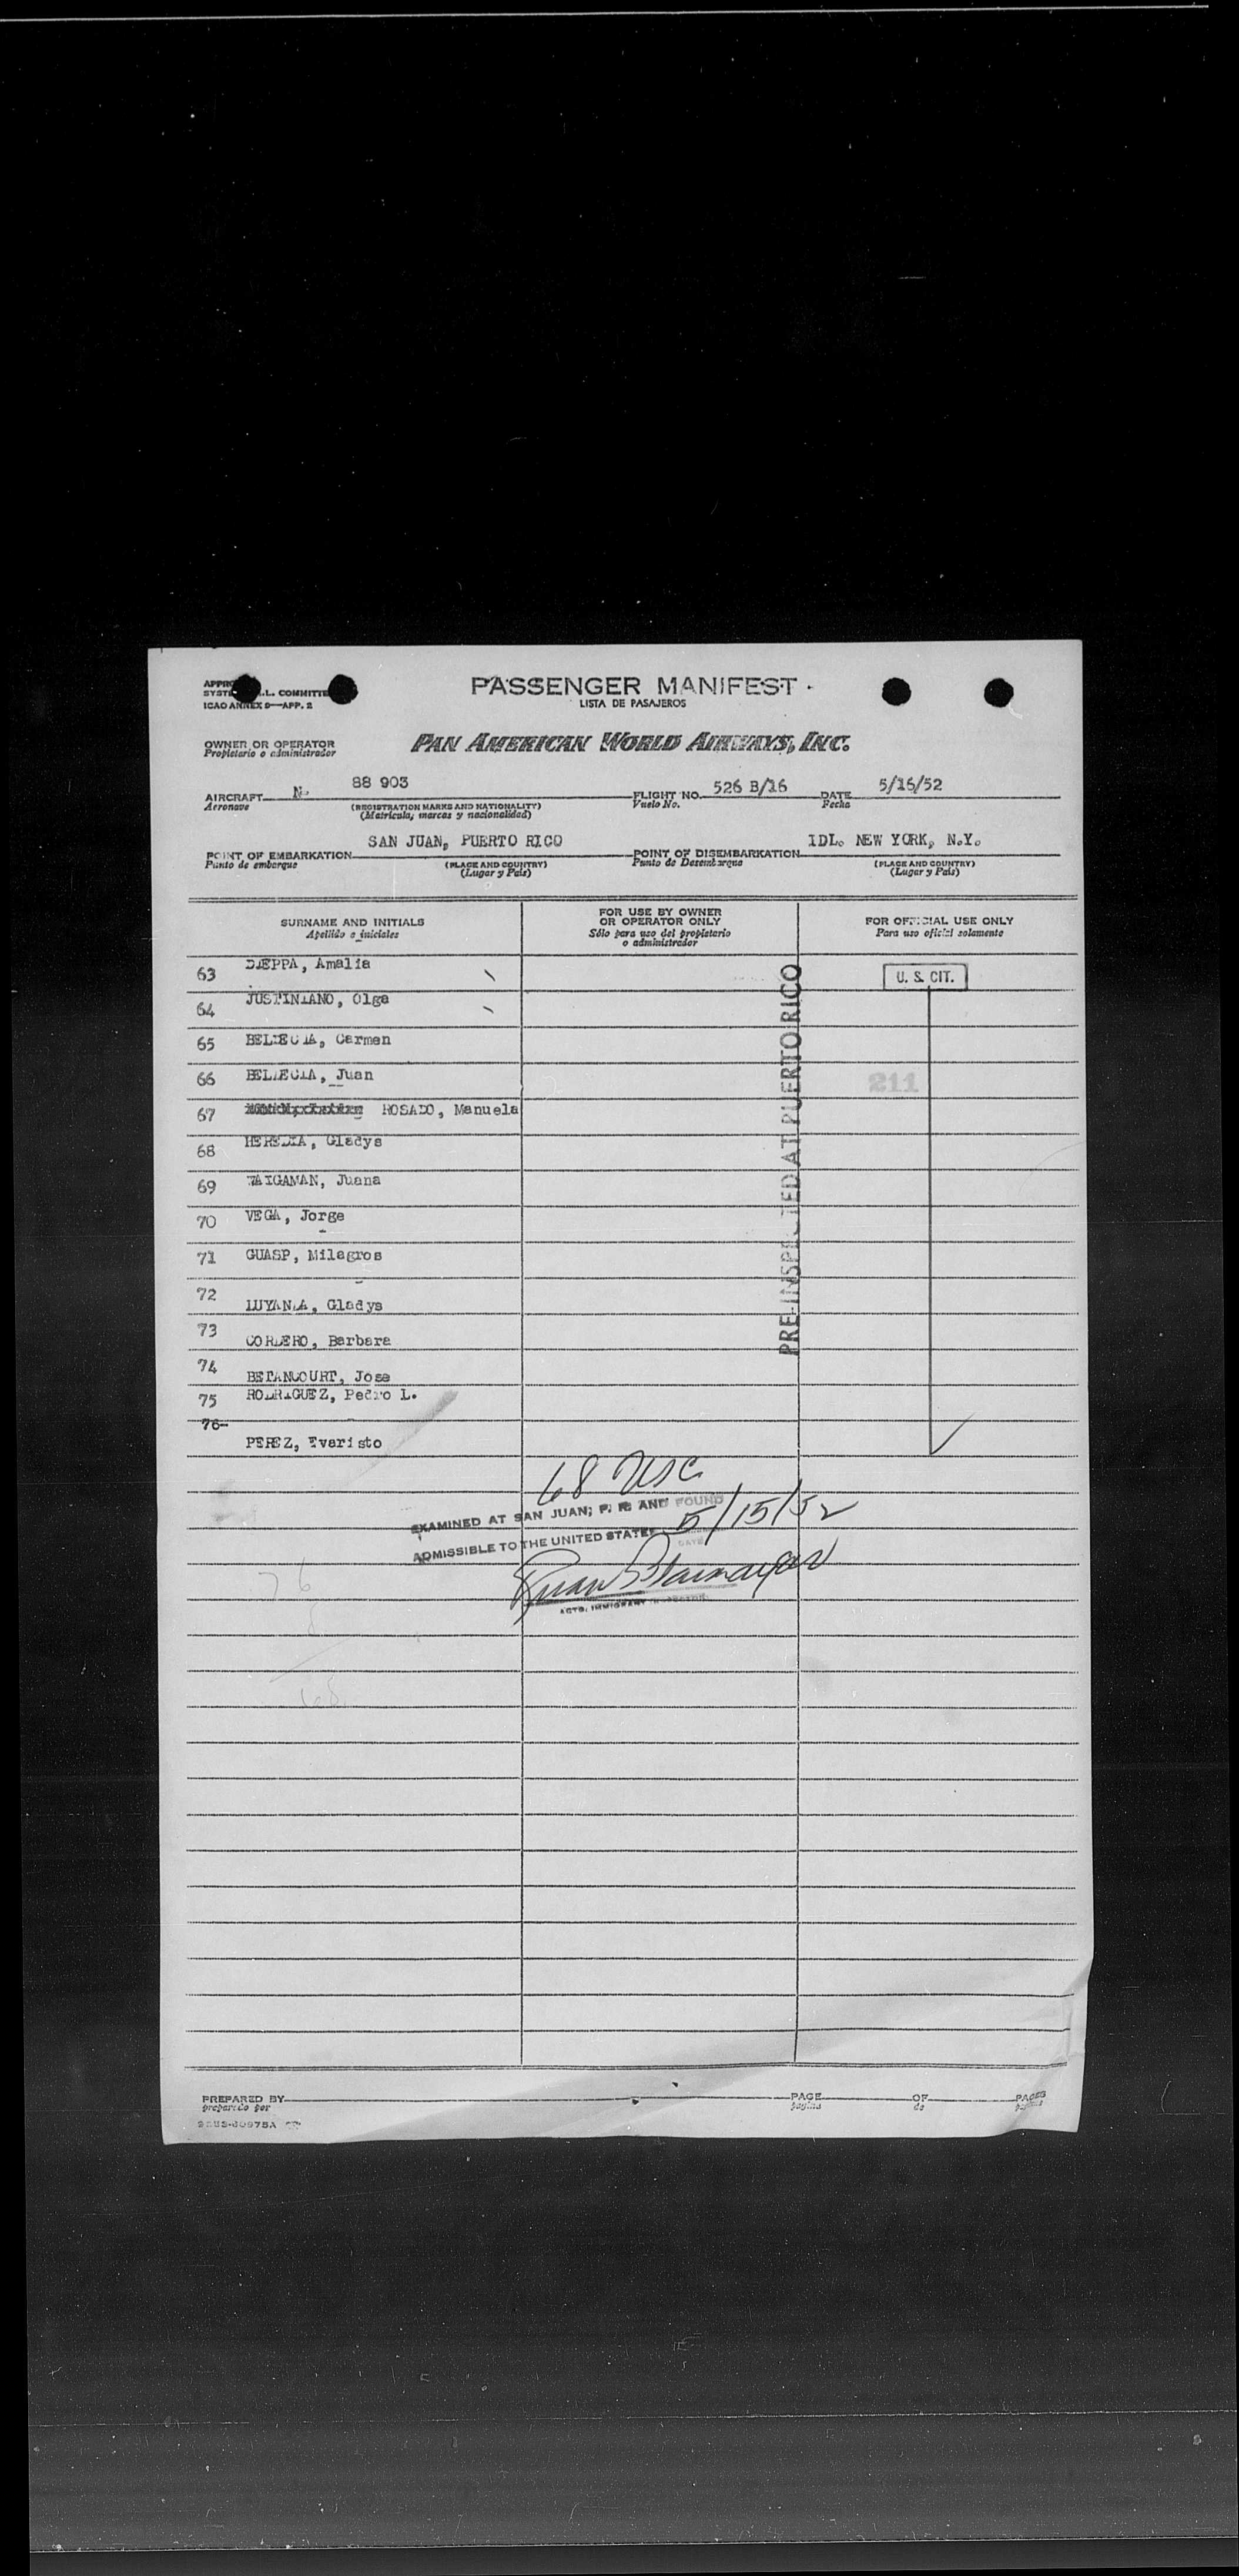 PASSENGER MANIFEST
LISTA DE PASAJEROS
ICAO ANNEX 9—APP. 2
OWNER OR OPERATOR
Propietario o administrador
PAN AMERICAN WORLD AIRWAYS, INC.
AIRCRAFT N 88 903 FLIGHT NO. 526 B/16 DATE 5/16/52
Aeronave (REGISTRATION MARKS AND NATIONALITY) Vuelo No. Fecha
(Matricula, marcas y nacionalidad)
POINT OF EMBARKATION SAN JUAN, PUERTO RICO POINT OF DISEMBARKATION IDL. NEW YORK, N.Y.
Punto de embarque (PLACE AND COUNTRY) Punto de Desembarque (PLACE AND COUNTRY)
(Lugar y País) (Lugar y País)
SURNAME AND INITIALS
Apellido e iniciales
FOR USE BY OWNER
OR OPERATOR ONLY
Sólo para uso del propietario
o administrador
FOR OFFICIAL USE ONLY
Para uso oficial solamente
63 DIEPPA, Amalia U. S. CIT.
64 JUSTINIANO, Olga
65 Carmen
66 Juan 211
67 ROSADO, Manuela
68 HEREDIA, Gladys
69 Juana
70 VEGA, Jorge
71 GUASP, Milagros
72 LUYANDA, Gladys
73 CORDERO, Barbara
74 BETANCOURT, Jose
75 RODRIGUEZ, Pedro L.
76- PEREZ, Evaristo
PRE-INSPECTED AT PUERTO RICO
68 USC
EXAMINED AT SAN JUAN, P. R. AND FOUND
ADMISSIBLE TO THE UNITED STATES 5/15/52
DATE
ACTG. IMMIGRANT INSPECTOR
76
8
68
PREPARED BY PAGE OF PAGES
preparado por pagina de paginas